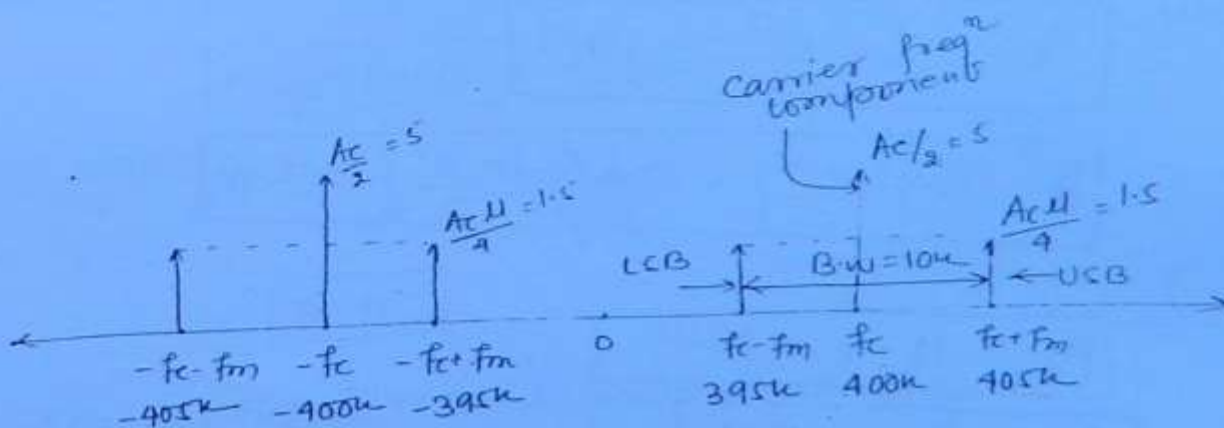 carrier freqⁿ
component
Ac/2 = 5
Ac/2 = 5
Acμ/4 = 1.5
Acμ/4 = 1.5
LSB
B.W = 10k
USB
-fc-fm -fc -fc+fm 0 fc-fm fc fc+fm
-405k -400k -395k 395k 400k 405k